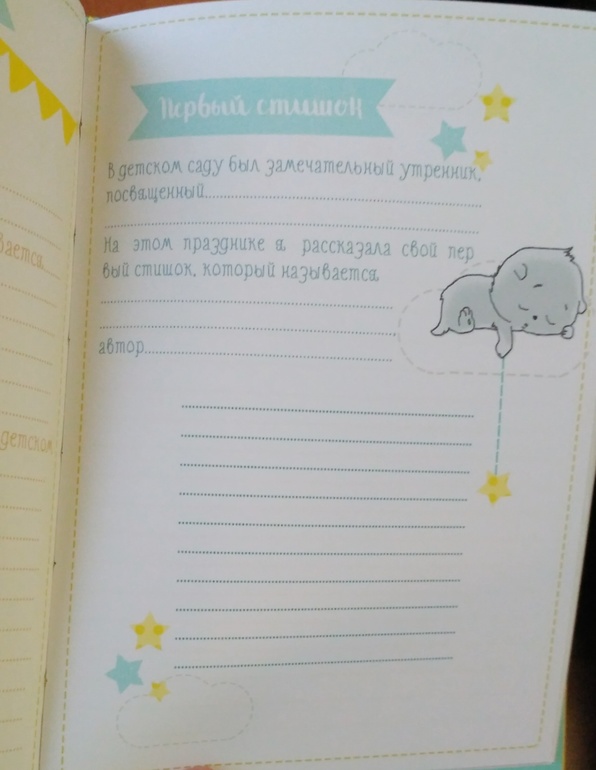 Первый стишок
В детском саду был замечательный утренник,
посвященный
На этом празднике я рассказала свой пер
вый стишок, который называется
автор
вается
детском